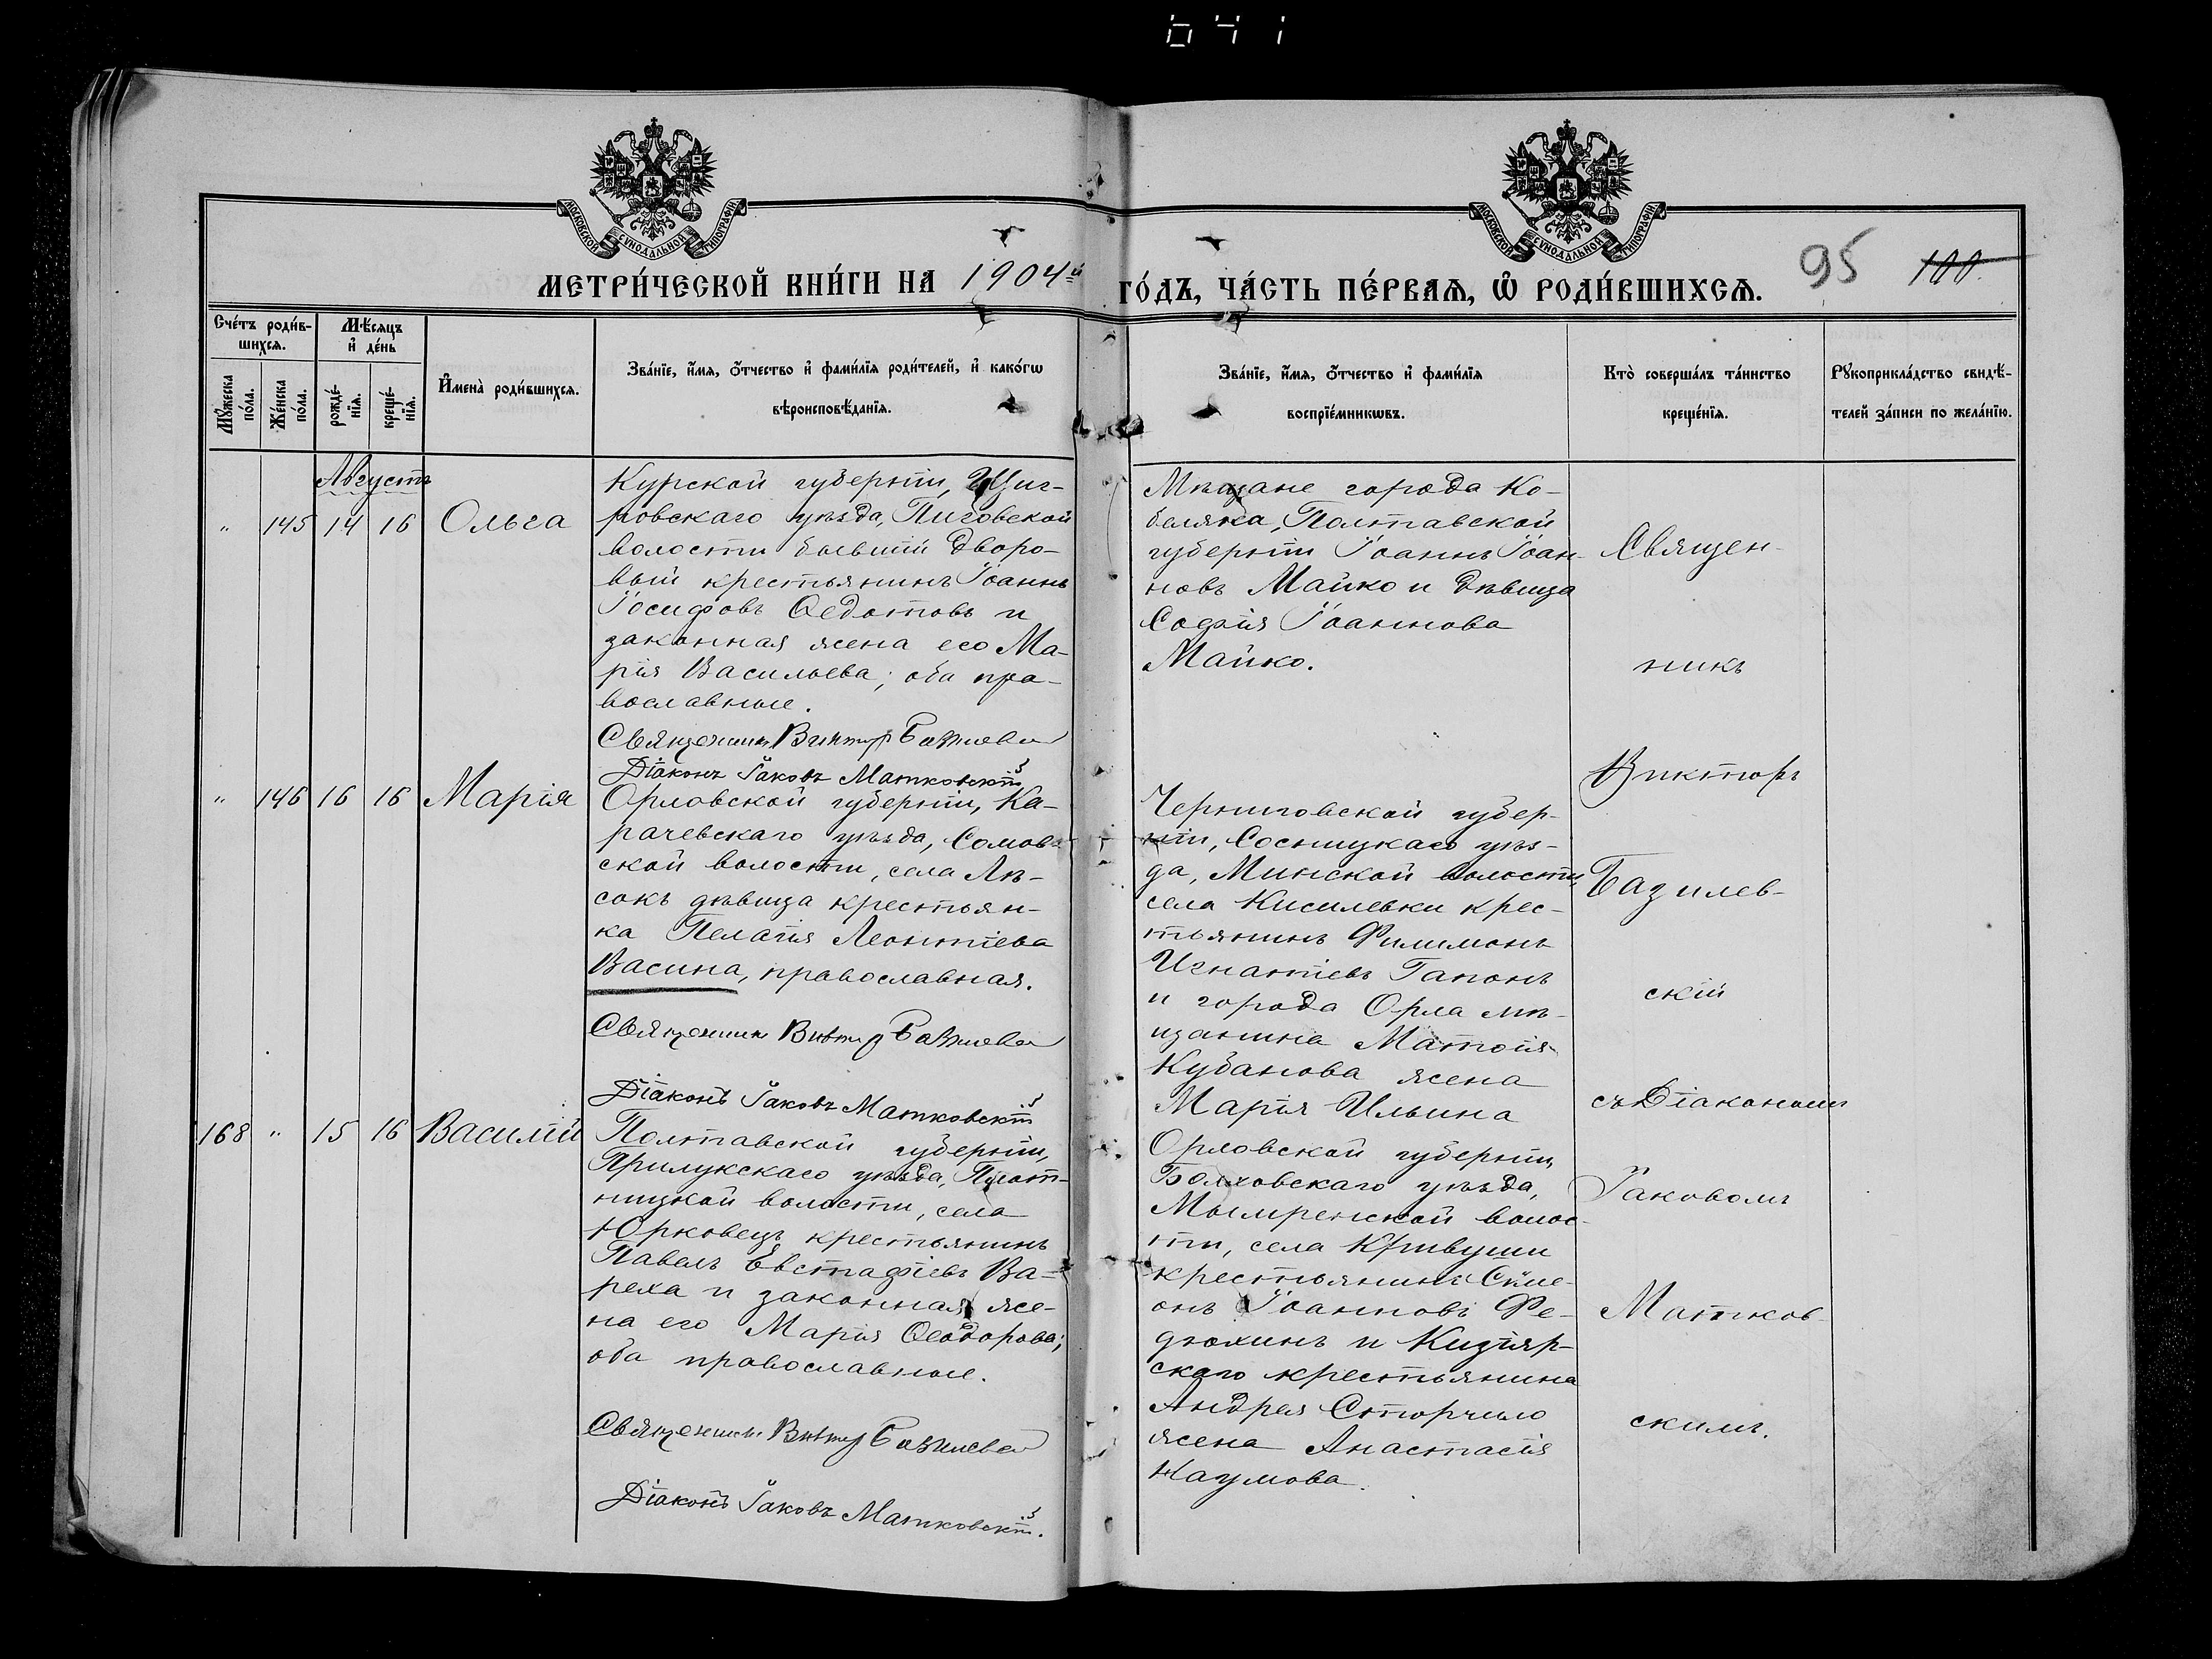 641
МОСКОВСКОЙ СУНОДАЛЬНОЙ ТИПОГРАФІИ
МОСКОВСКОЙ СУНОДАЛЬНОЙ ТИПОГРАФІИ
МЕТРИ́ЧЕСКОЙ КНИ́ГИ НА 1904й ГО́ДЪ, ЧА́СТЬ ПЕ́РВАѦ, Ѡ҆ РОДИ́ВШИХСѦ.
95 100
Сче́тъ роди́в-
шихсѧ.
Мѣ́сѧцъ
и҆ де́нь
Мꙋ́жеска
по́ла.
Же́нска
по́ла.
рожде́-
нїѧ.
креще́-
нїѧ.
И҆мена̀ роди́вшихсѧ.
Зва́нїе, и҆́мѧ, ѻ҆́тчество и҆ фами́лїѧ роди́телей, и҆ како́гѡ
вѣроисповѣ́данїѧ.
Зва́нїе, и҆́мѧ, ѻ҆́тчество и҆ фами́лїѧ
воспрїе́мникѡвъ.
Кто̀ соверша́лъ та́инство
креще́нїѧ.
Рꙋкоприкла́дство свидѣ́-
телей за́писи по жела́нїю.
Августъ
" 145 14 16 Ольга
Курской губерніи, Щиг-
ровскаго уѣзда, Пиговской
волости бывшій дворо-
вый крестьянинъ Іоаннъ
Іосифовъ Ѳедотовъ и
законная жена его Ма-
рія Васильева; оба пра-
вославные.
Священникъ Викторъ Базилевск
Діаконъ Іаковъ Матковскій
Мѣщане города Ко-
беляка, Полтавской
губерніи Іоаннъ Іоан-
новъ Майко и дѣвица
Софія Іоаннова
Майко.
" 146 16 16 Марія
Орловской губерніи, Ка-
рачевскаго уѣзда, Сомов-
ской волости, села Лѣ-
сокъ дѣвица крестьян-
ка Пелагія Леонтіева
Васина, православная.
Священникъ Викторъ Базилевск
Діаконъ Іаковъ Матковскій
Черниговской губер-
ніи, Сосницкаго уѣз-
да, Минской волости,
села Кисилевки крес-
тьянинъ Филимонъ
Игнатіевъ Гапонъ
и города Орла мѣ-
щанина Матѳія
Кубанова жена
Марія Ильина
168 " 15 16 Василій
Полтавской губерніи,
Прилукскаго уѣзда,
ницкой волости, села
Юрковецъ крестьянинъ
Павелъ Евстафіевъ Ва-
реха и законная же-
на его Марія Ѳеодорова;
оба православные.
Священникъ Викторъ Базилевск
Діаконъ Іаковъ Матковскій.
Орловской губерніи,
Болховскаго уѣзда,
Мымренской волос-
ти, села Кривуши
крестьянинъ Сѵме-
онъ Іоанновъ Фе-
дюхинъ и Кизіяр-
скаго крестьянина
Андрея Сторчило
жена Анастасія
Наумова.
Священ-
никъ
Викторъ
Базилев-
скій
съ Діакономъ
Іаковомъ
Матков-
скимъ.